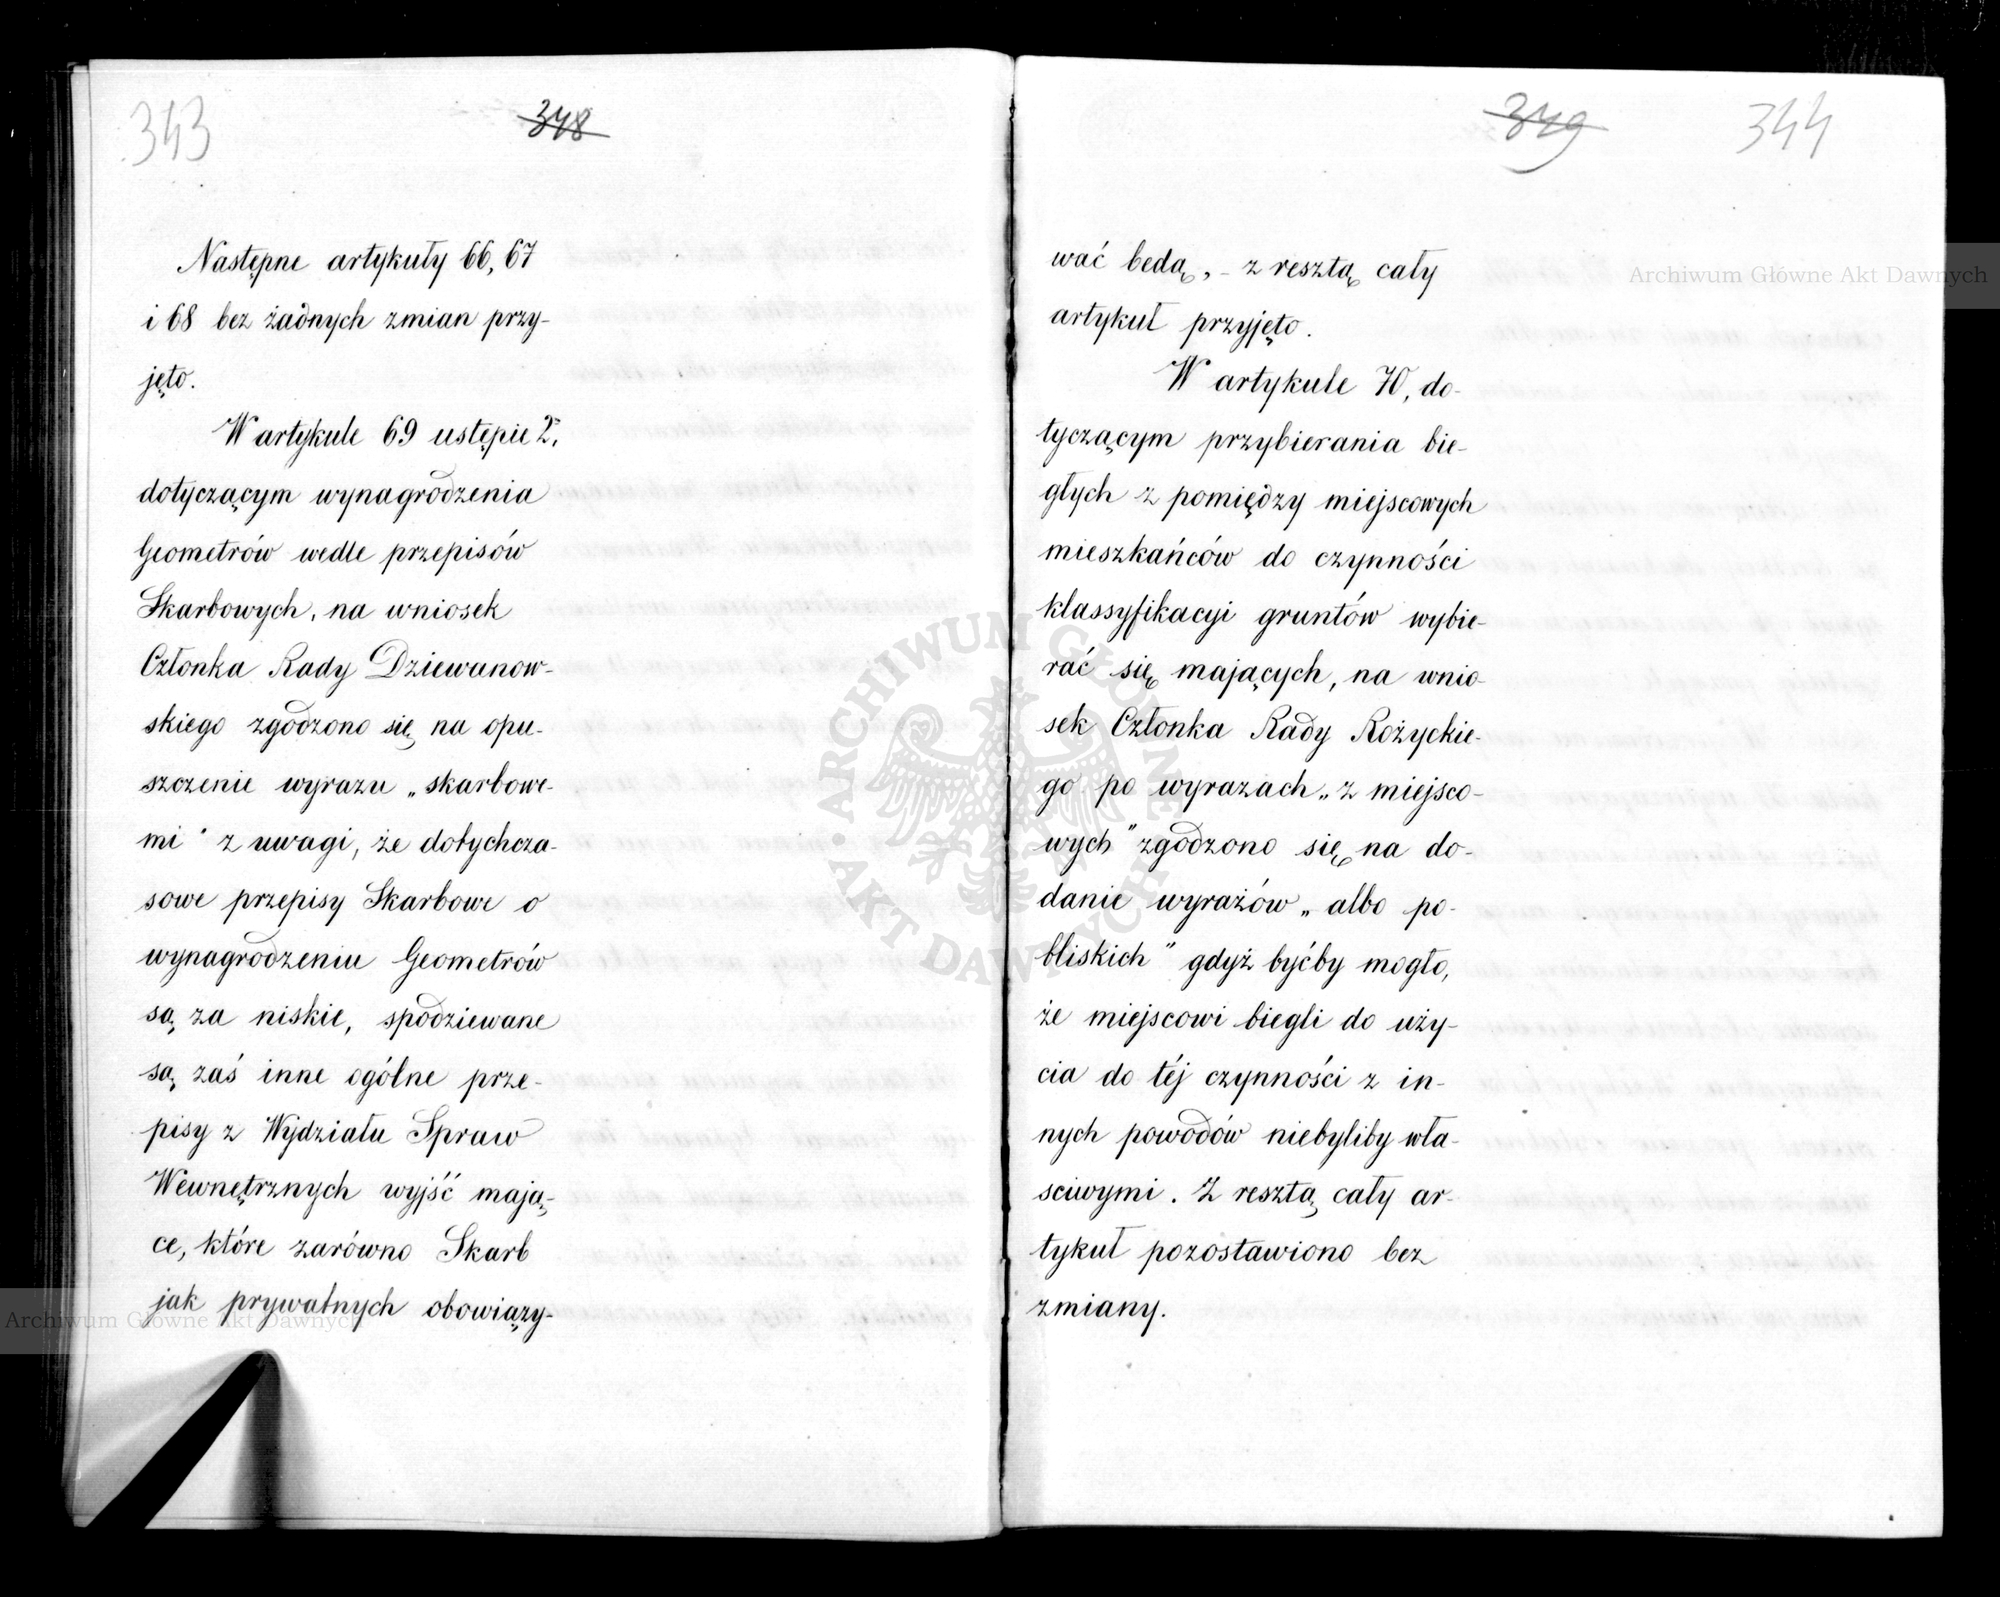 343
348
Następne artykuły 66, 67
i 68 bez żadnych zmian przy-
jęto.
W artykule 69 ustępie 2,
dotyczącym wynagrodzenia
Geometrów wedle przepisów
Skarbowych, na wniosek
Członka Rady Dziewanow-
skiego zgodzono się na opu-
szczenie wyrazu „skarbowe-
mi" z uwagi, że dotychcza-
sowe przepisy Skarbowe o
wynagrodzeniu Geometrów
są za niskie, spodziewane
są zaś inne ogólne prze-
pisy z Wydziału Spraw
Wewnętrznych wyjść mają-
ce, które zarówno Skarb
jak prywatnych obowiązy-
349
344
wać beda, - z resztą cały
artykuł przyjęto.
W artykule 70, do-
tyczącym przybierania bie-
głych z pomiędzy miejscowych
mieszkańców do czynności
klassyfikacyi gruntów wybie-
rać się mających, na wnio-
sek Członka Rady Rożyckie-
go po wyrazach „z miejsco-
wych" zgodzono się na do-
danie wyrazów „albo po-
bliskich" gdyż byćby mogło,
że miejscowi biegli do uży-
cia do téj czynności z in-
nych powodów niebyliby wła-
sciwymi. Z resztą cały ar-
tykuł pozostawiono bez
zmiany.
Archiwum Główne Akt Dawnych
Archiwum Główne Akt Dawnych
ARCHIWUM GŁÓWNE
AKT DAWNYCH